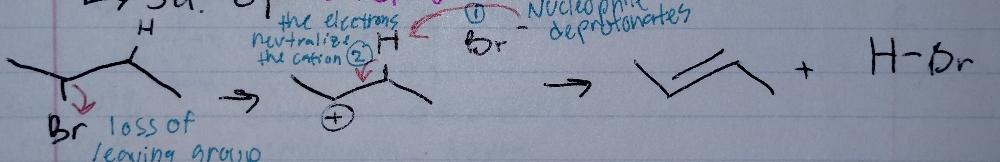 the electrons
neutralize
the cation ②
① Nucleophile
deprotonates
H
H
Br -
H-Br
+
+
Br loss of
leaving group